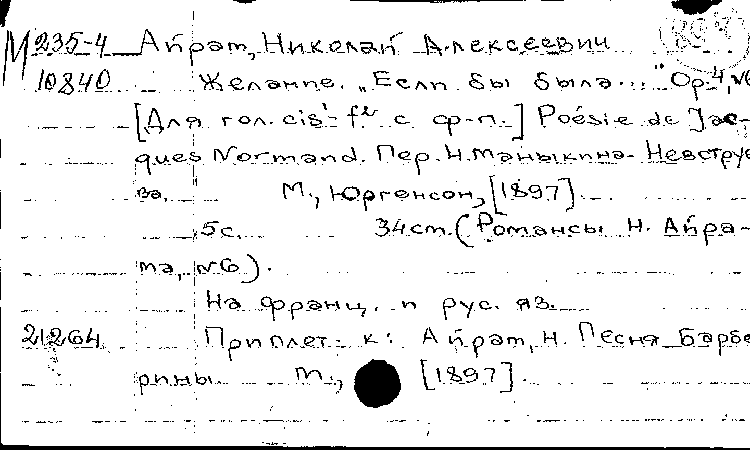 М 235-4 Айрат, Николай Алексеевич
10840 Желание. „Если бы была..." Ор. 4, №6
[Для гол. cis¹-f² с ф-п.] Poésie de Jac-
ques Normand. Пер. Н. Маныкина-Невструе-
ва. М., Юргенсон, [1897].
5с. 34 см. (Романсы Н. Айра-
та, №6).
На франц. и рус. яз.
21264 Приплет. к: Айрат, Н. Песня Барбе-
рины. М., [1897].